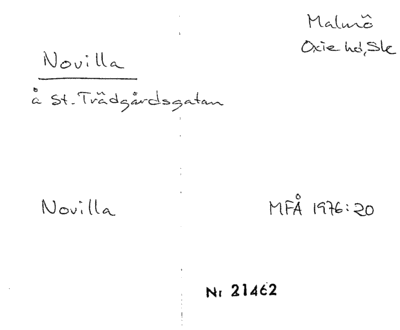 Novilla
å St. Trädgårdsgatan
Malmö
Oxie hd, Sk
Novilla
MFÅ 1976:20
Nr 21462